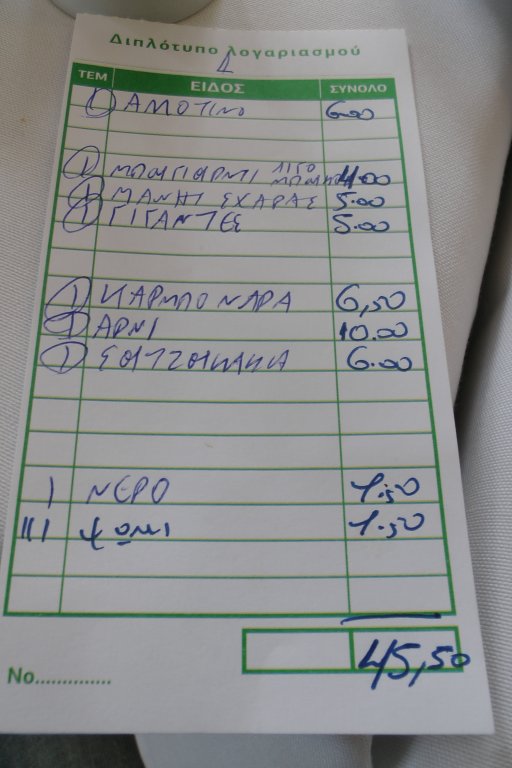 Διπλότυπο λογαριασμού
Δ
ΤΕΜ ΕΙΔΟΣ ΣΥΝΟΛΟ
1 ΑΜΟΤΙΝΟ 6.00
1 ΛΙΓΟ 4.00
1 ΜΑΝΗΤ ΣΧΑΡΑΣ 5.00
1 ΓΙΓΑΝΤΕΣ 5.00
1 ΚΑΡΜΠΟΝΑΡΑ 6,50
1 ΑΡΝΙ 10.00
1 ΣΟΥΤΖΟΥΚΑΚΙΑ 6.00
1 ΝΕΡΟ 1.50
III ΨΩΜΙ 1.50
45,50
No..............